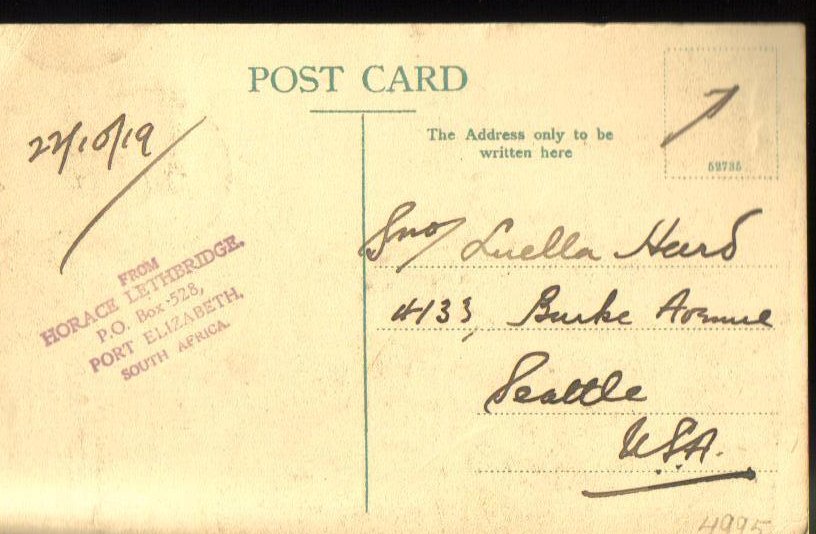 POST CARD
22/10/19
The Address only to be
written here
52735
Luella Heard
4133, Burke Avenue
Seattle
U.S.A.
FROM
HORACE LETHBRIDGE,
P.O. Box 528,
PORT ELIZABETH,
SOUTH AFRICA.
4995